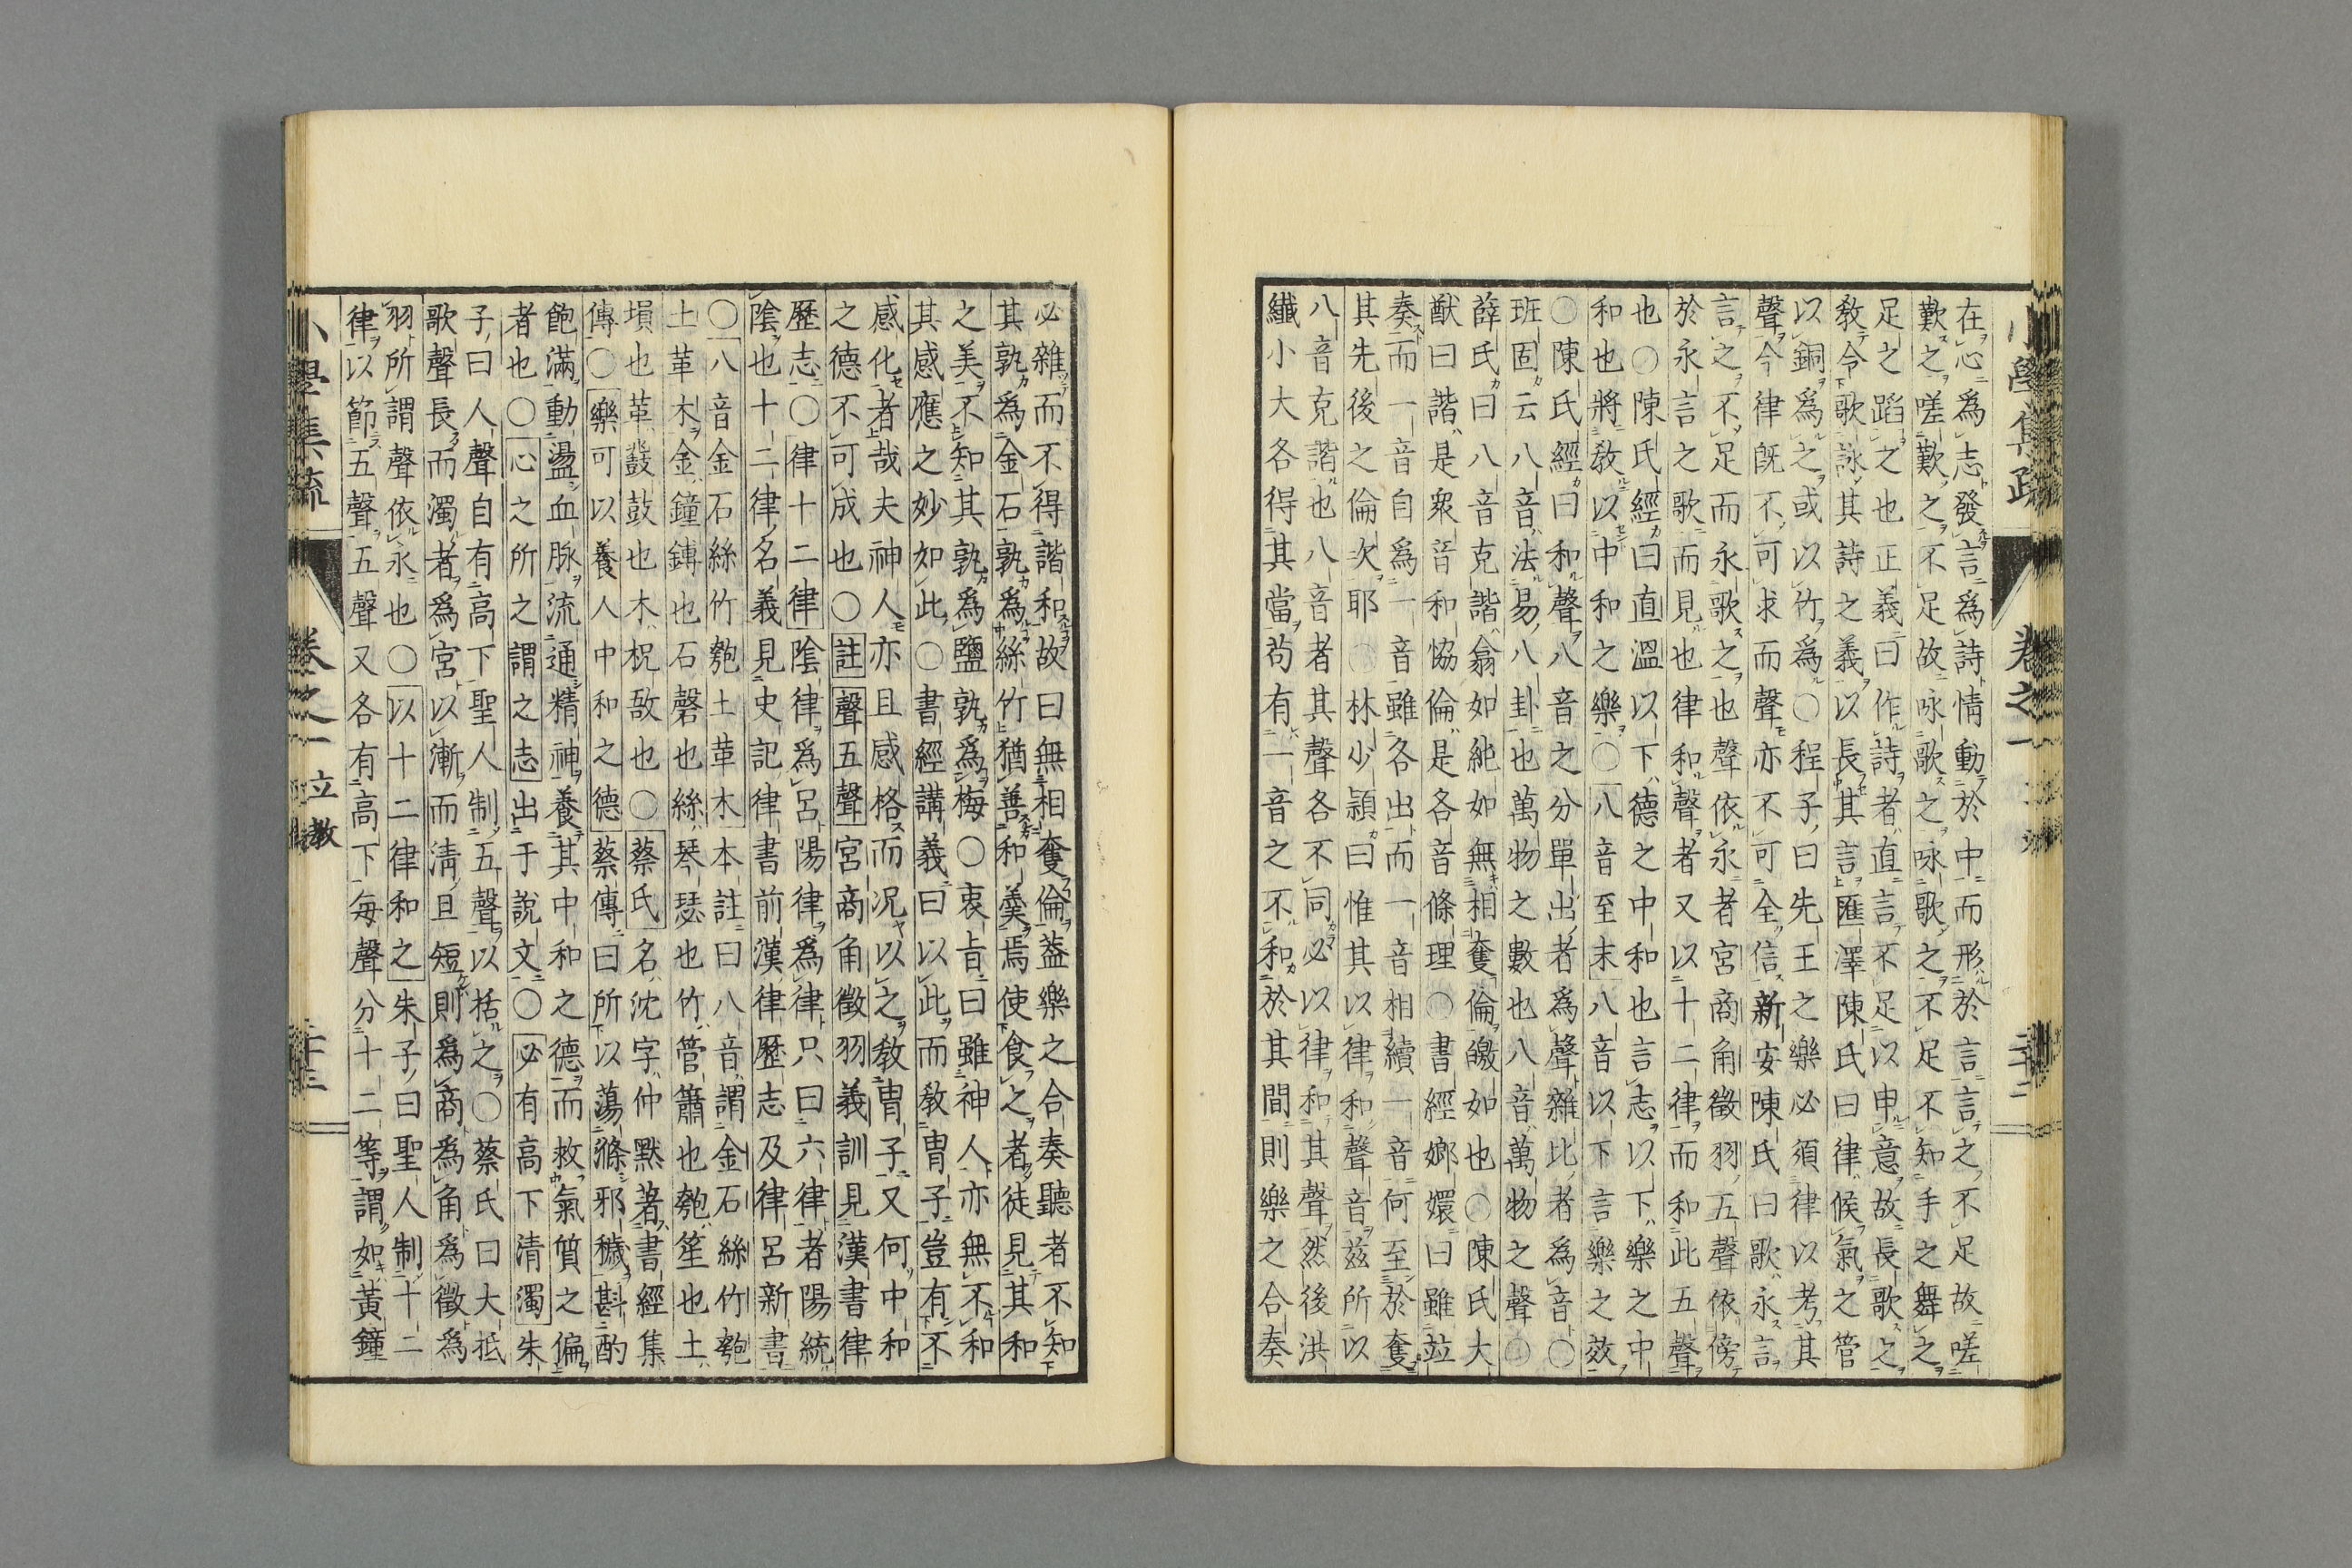 在心爲志發言爲詩情動於中而形於言言之不足故嗟
歎之嗟歎之不足故咏歌之咏歌之不足不知手之舞之
足之蹈之也正義曰作詩者直言不足以申意故長歌之
教令歌詠其詩之義以長其言匯澤陳氏曰律候氣之管
以銅爲之或以竹爲〇程子曰先王之樂必須律以考其
聲今律旣不可求而聲亦不可全信新安陳氏曰歌永言
言之不足而永歌之也聲依永者宮商角徵羽五聲依傍
於永言之歌而見也律和聲者又以十二律而和此五聲
也〇陳氏經曰直溫以下德之中和也言志以下樂之中
和也將教以中和之樂〇八音至末八音以下言樂之效
〇陳氏經曰和聲八音之分單出者爲聲雜比者爲音〇
班固云八音法易八卦也萬物之數也八音萬物之聲〇
薛氏曰八音克諧翕如純如無相奪倫皦如也〇陳氏大
猷曰諧是衆音和協倫是各音條理〇書經嫏嬛曰雖竝
奏而一音自爲一音雖各出而一音相續一音何至於奪
其先後之倫次耶〇林少穎曰惟其以律和聲音茲所以
八音克諧也八音者其聲各不同必以律和其聲然後洪
纖小大各得其當苟有一音之不和於其間則樂之合奏
小學集疏
卷之一
必雜而不得諧和故曰無相奪倫蓋樂之合奏聽者不知
其孰爲金石孰爲絲竹猶善和羹焉使食之者徒見其和
之美不知其孰爲鹽孰爲梅〇衷旨曰雖神人亦無不和
其感應之妙如此〇書經講義曰以此而教冑子豈有不
感化者哉夫神人亦且感格而况以之教冑子又何中和
之德不可成也〇註聲五聲宮商角徵羽義訓見漢書律
歷志〇律十二律陰律爲呂陽律爲律只曰六律者陽統
陰也十二律名義見史記律書前漢律歷志及律呂新書
〇八音金石絲竹匏土革木本註曰八音謂金石絲竹匏
土革木金鐘鎛也石磬也絲琴瑟也竹管簫也匏笙也土
塤也革鼗鼓也木柷敔也〇蔡氏名沈字仲默著書經集
傳〇樂可以養人中和之德蔡傳曰所以蕩滌邪穢斟酌
飽滿動盪血脉流通精神養其中和之德而救氣質之偏
者也〇心之所之謂之志出于說文〇必有高下清濁朱
子曰人聲自有高下聖人制五聲以括之〇蔡氏曰大抵
歌聲長而濁者爲宮以漸而清且短則爲商爲角爲徵爲
羽所謂聲依永也〇以十二律和之朱子曰聖人制十二
律以節五聲五聲又各有高下每聲分十二等謂如黃鐘
小學集疏
卷之一
立教
二十三